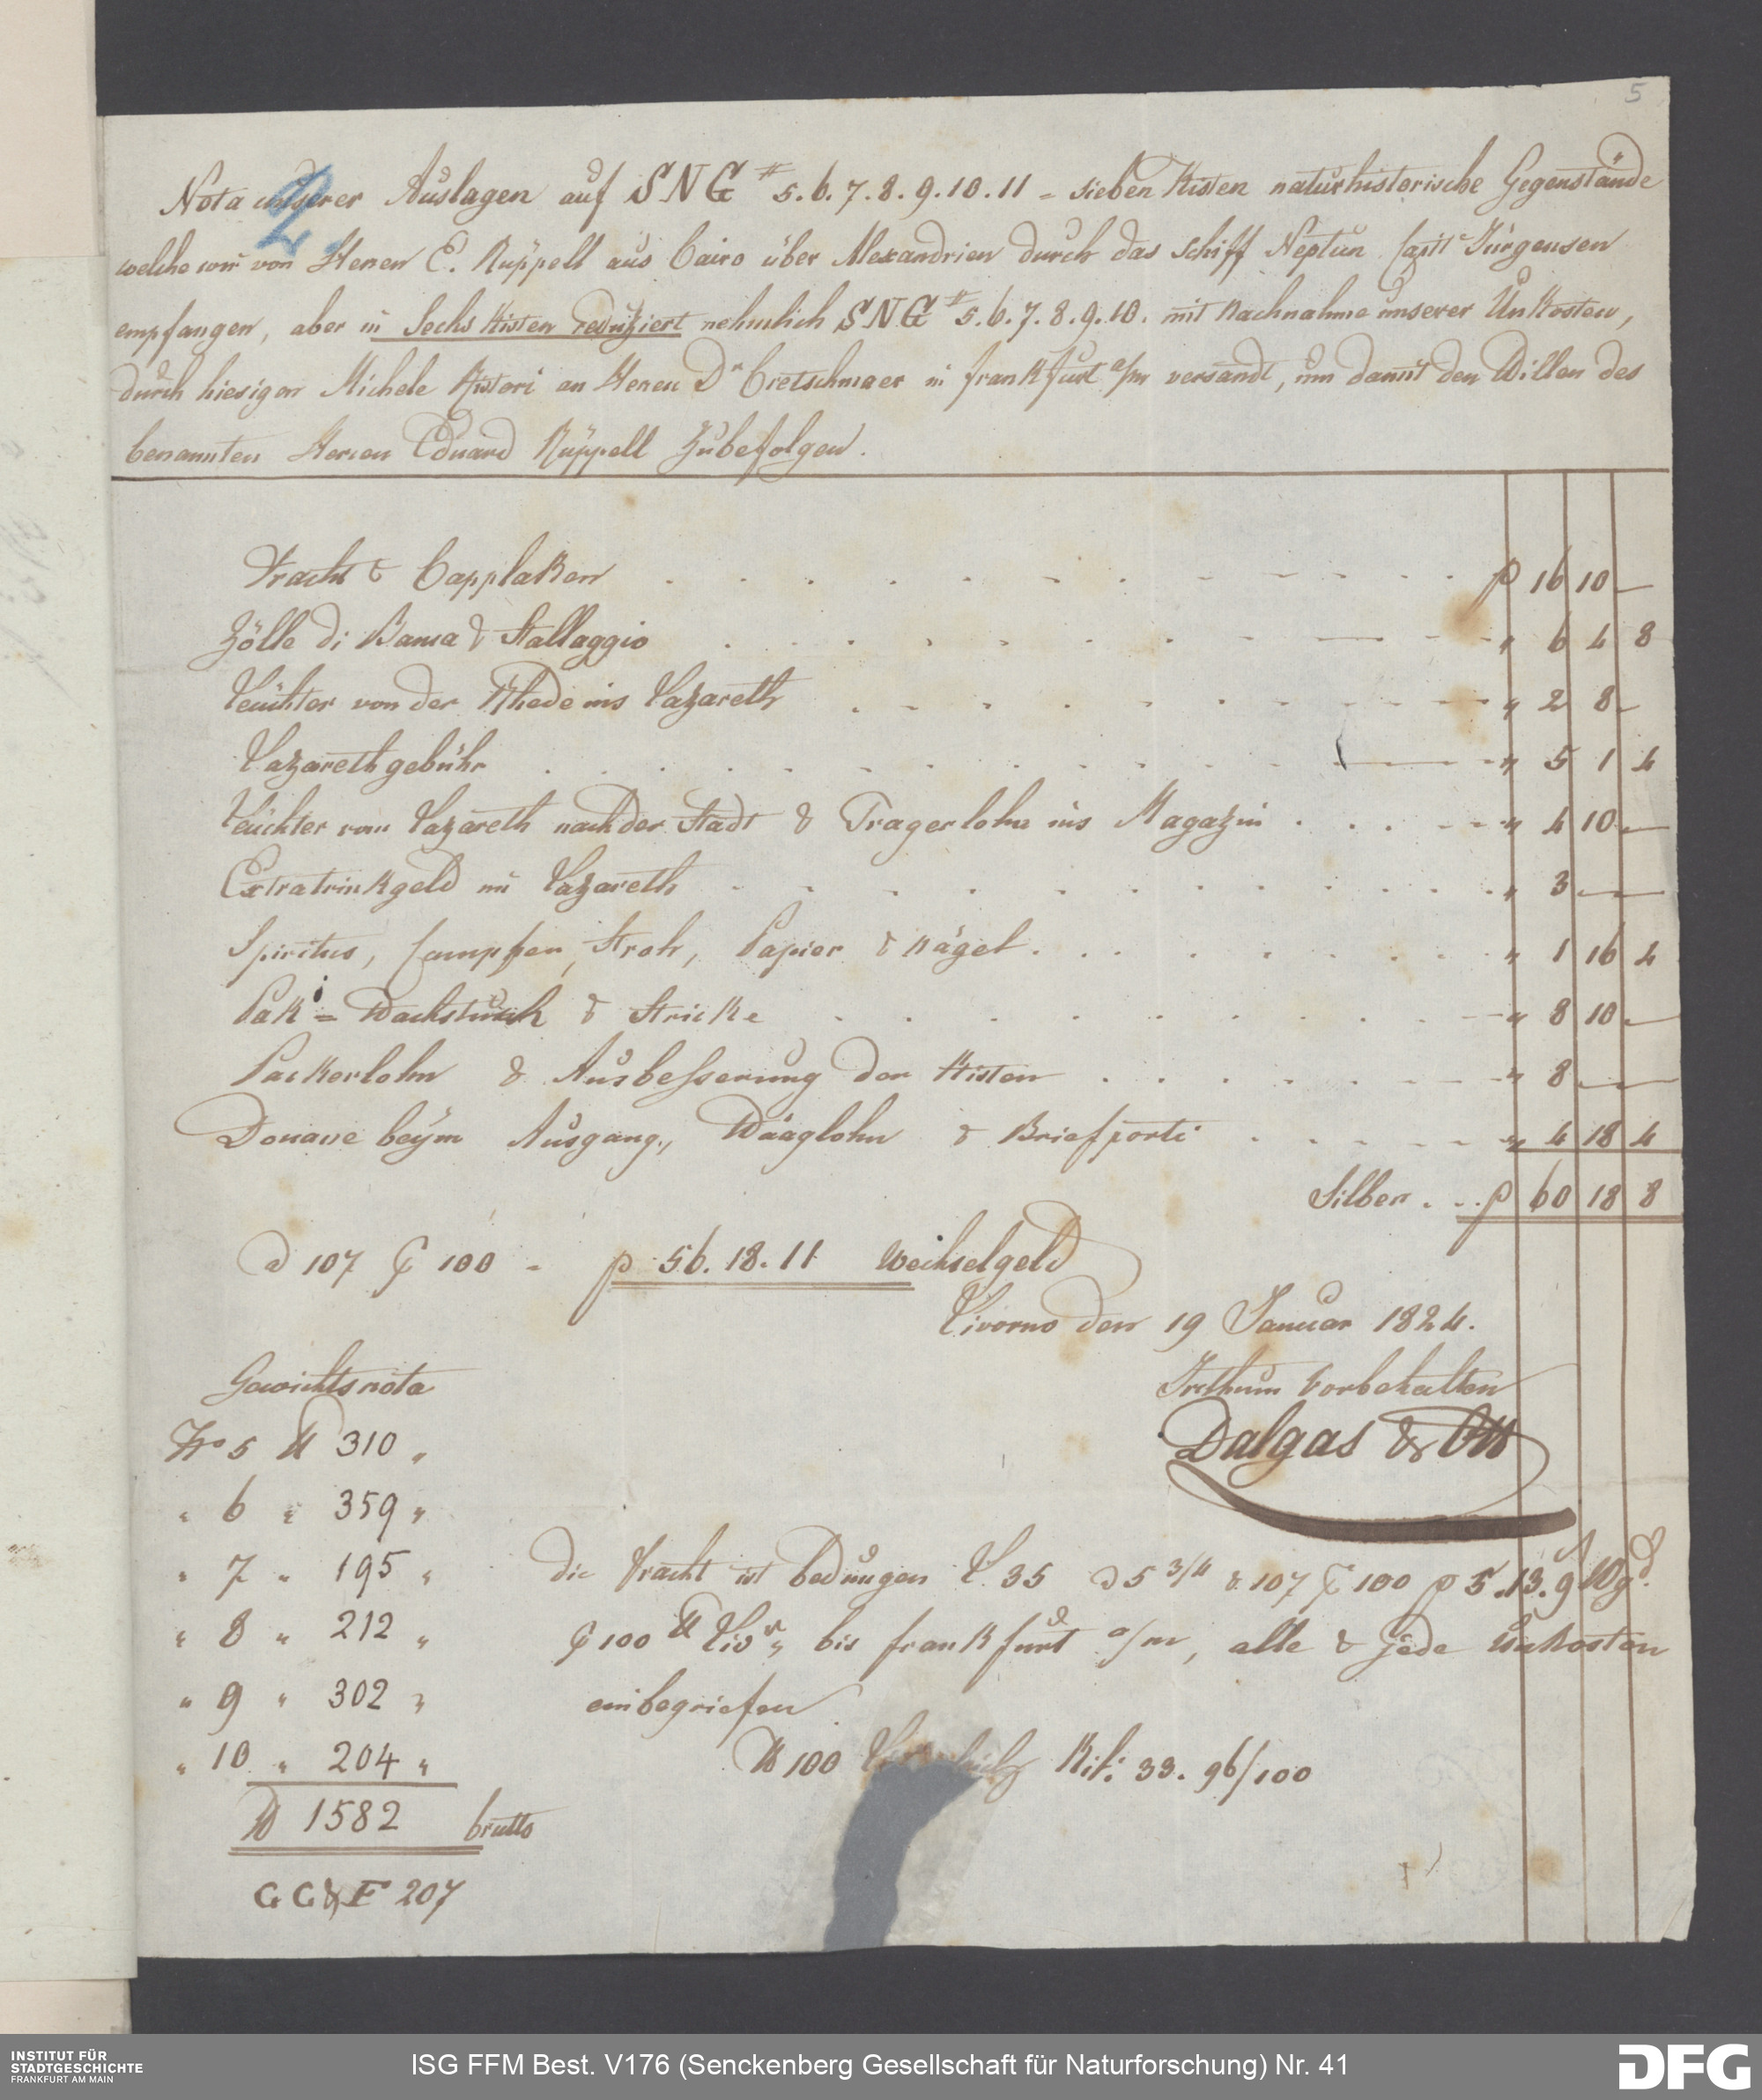 5
Nota unserer Auslagen auf SNG # 5.6.7.8.9.10.11 - sieben Kisten naturhistorische Gegenstände
welche wir von Herren E. Rüppell aus Cairo über Alexandrien durch das Schiff Neptun Capit Jürgensen
empfangen, aber in Sechs Kisten reduziert nehmlich SNG # 5.6.7.8.9.10. mit Nachnahme unserer Unkosten,
durch hiesigen Michele Ristori an Herren Dr Cretschmaer in Frankfurt a/m versandt, um damit den Willen des
benannten Herren Eduard Rüppell Zubefolgen.
Fracht & Capplaken p 16 10 —
Zölle di Banca & Stallaggio " 6 4 8
Leuchter von der Rhede ins Lazareth " 2 8 —
Lazarethgebühr " 5 1 4
Leuchter vom Lazareth nach der Stadt & Tragerlohn ins Magazin " 4 10 —
Extratrinkgeld im Lazareth " 3 — —
Spiritus, Campfer, Stroh, Papier & Nägel " 1 16 4
Pak = Wachstuch & Stricke " 8 10 —
Packerlohn & Ausbesserung der Kisten " 8 — —
Douane beym Ausgang, Waaglohn & Briefporti " 4 18 4
Silber p 60 18 8
a 107 p 100 - p 56.18.11 Wechselgeld
Livorno den 19 Januar 1824.
Irrthum Vorbehalten
Dalgas & Ott
Gewichtsnota
No 5 ℔ 310 "
" 6 " 359 "
" 7 " 195 "
" 8 " 212 "
" 9 " 302 "
" 10 " 204 "
℔ 1582 brutto
GG&F 207
Die Fracht ist bedungen L. 35 a 5 3/4 & 107 p 100 p 5.13.9 Wgd.
p 100 ℔ Livr. bis Frankfurt a/m, alle & jede Unkosten
einbegriefen
℔ 100 Kil: 33. 96/100
INSTITUT FÜR
STADTGESCHICHTE
FRANKFURT AM MAIN
ISG FFM Best. V176 (Senckenberg Gesellschaft für Naturforschung) Nr. 41
DFG